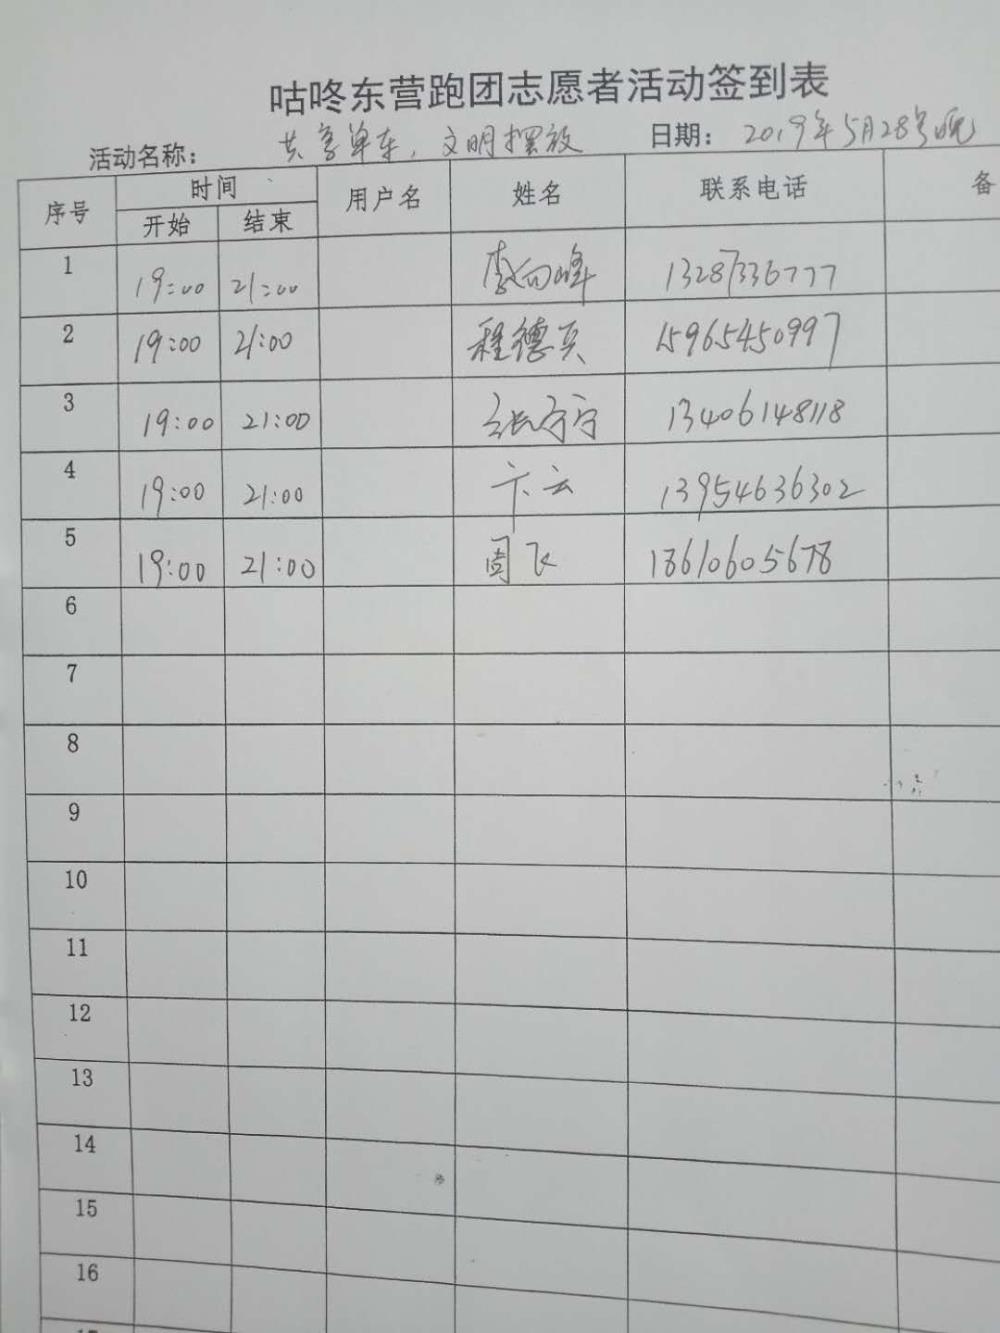 咕咚东营跑团志愿者活动签到表
活动名称： 共享单车，文明摆放 日期： 2019年5月28号晚
序号 时间 用户名 姓名 联系电话 备
开始 结束
1 19:00 21:00 李向峰 13287336777
2 19:00 21:00 程德兵 15965450997
3 19:00 21:00 张宁宁 13406148118
4 19:00 21:00 卞云 13954636302
5 19:00 21:00 周飞 18610605678
6
7
8
9
10
11
12
13
14
15
16
17